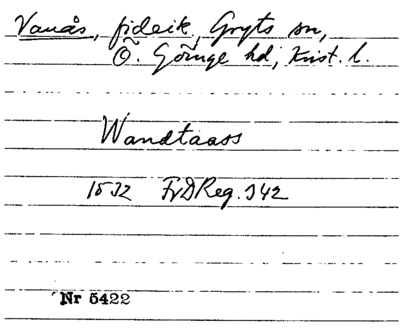 Vanås, fideik, Gryts sn,
Ö. Göinge hd, Krist. l.
Wandtaass
1532 FrDReg. 342
Nr 5422